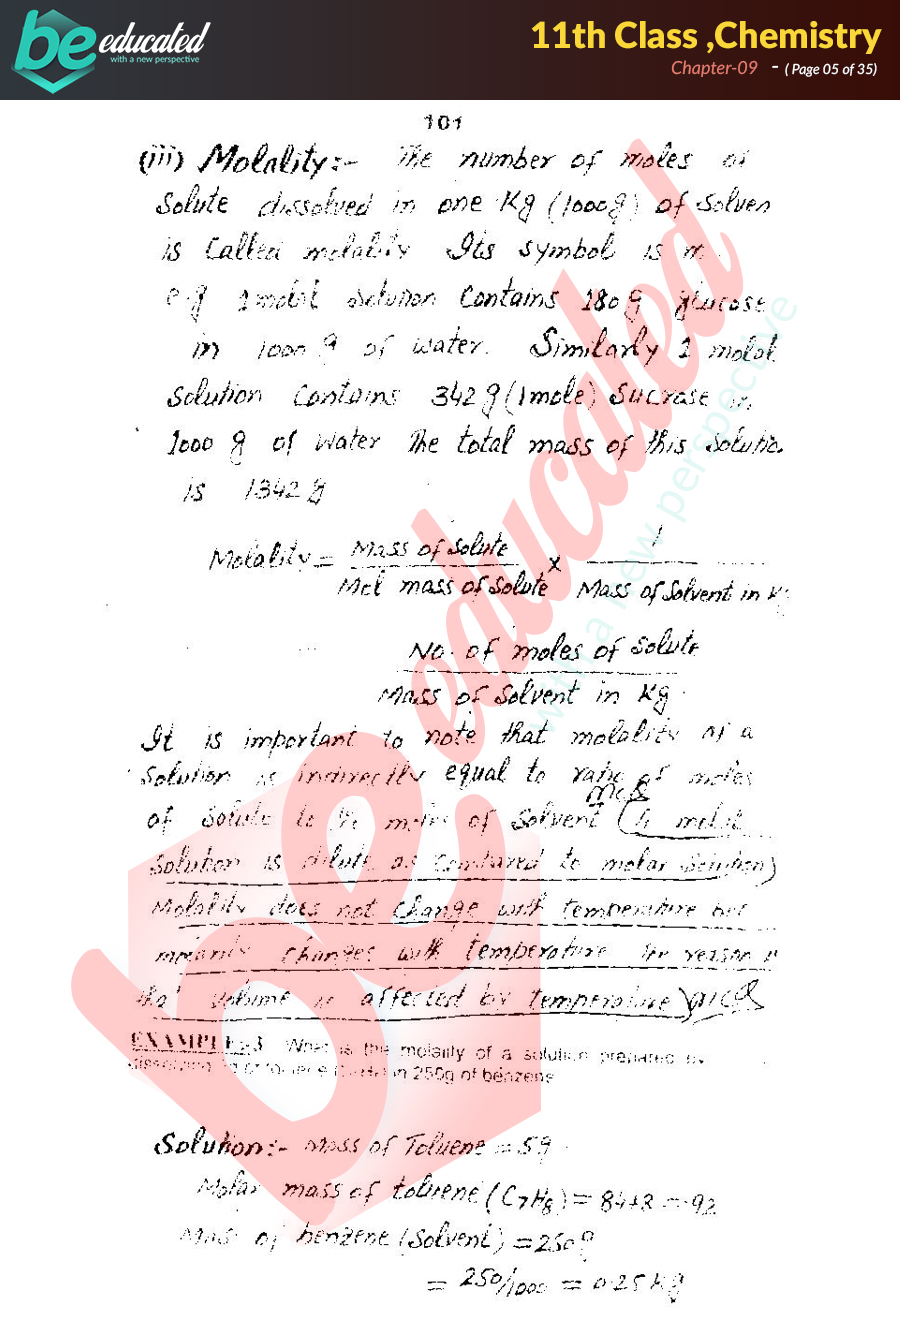 be educated
with a new perspective
11th Class ,Chemistry
Chapter-09 - ( Page 05 of 35)
101
(iii) Molality:- The number of moles of
solute dissolved in one Kg (1000g) of solven
is Called molality Its symbol is m
e.g 1 molal solution contains 180 g glucose
in 1000 g of water. Similarly 1 molal
solution contains 342 g (1mole) Sucrase in
1000 g of water The total mass of this solutio
is 1342 g
Molality = Mass of solute / Mol mass of solute x 1 / Mass of solvent in Kg
No. of moles of solute
Mass of solvent in Kg
It is important to note that molality of a
solution is indirectly equal to ratio of moles
mcq
of solute to the moles of solvent (1 molal
solution is dilute as compared to molar solution)
Molality does not change with temperature but
molarity changes with temperature the reason is
that volume is affected by temperature) mcq
EXAMPLE-3 What is the molality of a solution prepared by
dissolving 5g of toluene in 250g of benzene
Solution:- Mass of Toluene = 5g
Molar mass of toluene (C7H8) = 84+8 = 92
Mass of benzene (solvent) = 250g
= 250/1000 = 0.25 Kg
be educated
with a new perspective